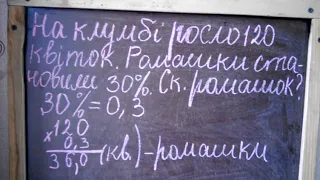 На клумбі росло 120
квіток. Ромашки ста-
новили 30%. Ск. ромашок?
30% = 0,3
120
× 0,3
36,0 (кв.) - ромашки